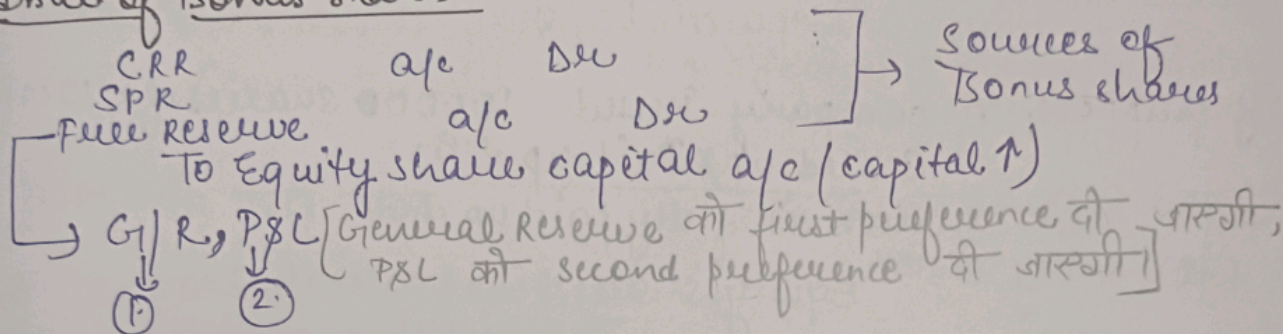 Issue of Bonus shares
CRR a/c Dr
SPR
Free Reserve a/c Dr
→ Sources of
Bonus shares
To Equity share capital a/c (capital ↑)
→ G/R, P&L [General Reserve को first preference दी जाएगी,
P&L को second preference दी जाएगी।]
① ②